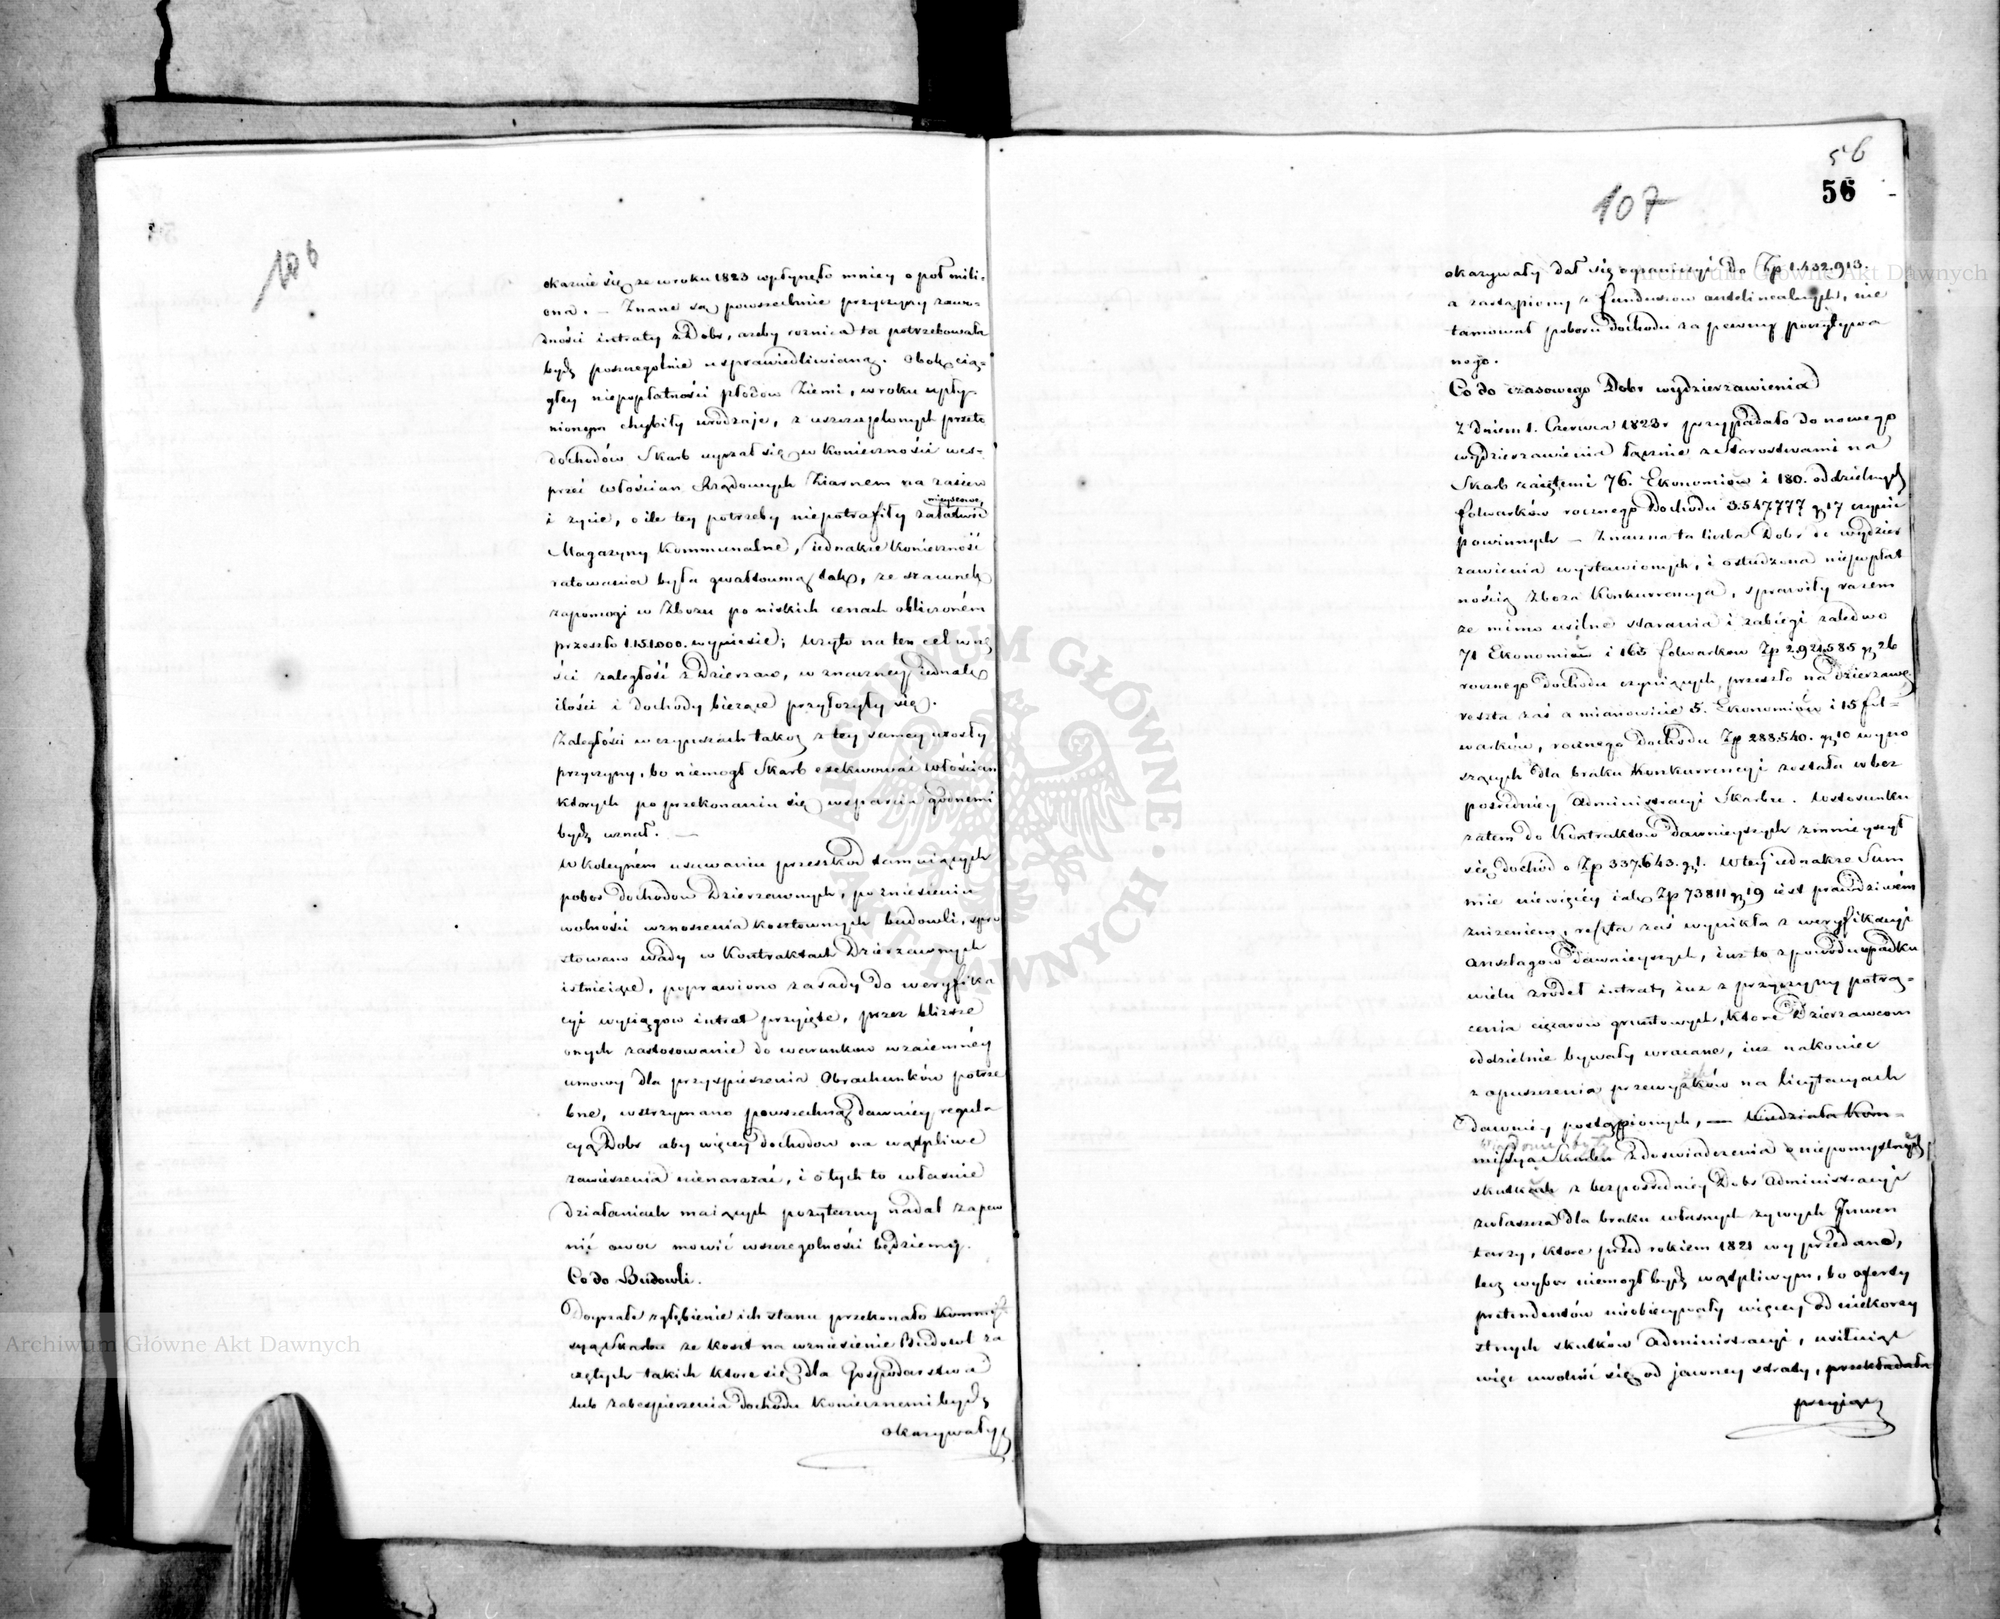 106
okazuie się ze w roku 1823 wpłynęło mniey o poł mili-
ona. – Znane są powszechnie przyczyny zawo-
dności intraty z Dobr, azeby roznica ta potrzebowała
bydź poszczegolnie usprawiedliwianą. Obok cią-
głey niepopłatności płodow Ziemi, w roku upły-
nionym chybiły urodzaje, z uszczuplonych przeto
dochodów Skarb uyrzał się w konieczności wes-
przeć włościan Rządowych Ziarnem na zasiew
mieyscowe
i zycie, o ile tey potrzeby niepotrafiły załatwić
Magazyny Kommunalne, iednakze konieczność
ratowania była gwałtowną tak, ze szacunek
zapomogi w Zbozu po niskich cenach obliczoném
przeszło 1.151.000. wyniesie; Uzyto na ten cel w czę
ści zaległość z Dzierzaw, w znaczney iednak
ilości i dochody biezące przyłozyły się.
Zaległości w czynszach takoz z tey samey urosły
przyczyny, bo niemogł Skarb exekwować włościan
ktorych po przekonaniu się wsparcia godnemi
bydź uznał. —
W koleyném usuwaniu przeszkod tamuiących
pobor dochodow Dzierzawnych, po zniesieniu
wolności wznoszenia kosztownych budowli, spro
stowano wady w Kontraktach Dzierzawnych
istnieiące, poprawiono zasady do weryfika
cyi wyciągow intrat przyięte, przez blizsze
onych zastosowanie do warunkow wzaiemnéy
umowy dla przyspieszenia Obrachunków potrze
bne, wstrzymano powszechną dawniey regula
cyą Dobr aby więcey dochodow na wątpliwe
zawieszenia nienarazać, i o tych to właśnie
działaniach maiących pozyteczny nadal zapew
nić owoc mowić w szczegolności będziemy.
Co do Budowli.
Doyrzałe zgłębienie ich stanu przekonało Kommis
syą Skarbu ze koszt na wzniesienie Budowl za
czętych takich ktore się dla Gospodarstwa
lub zabespieczenia dochodu koniecznemi bydź
okazywały
56
107
56
okazywały dał się ograniczyć do Zp 1.432.913.
a zastąpiony z funduszow anteli nealnych, nie
tamował poboru dochodu za pewny poczytywa
nego.
Co do czasowego Dobr wydzierzawienia
Z dniem 1. Czerwca 1823 r przypadało do nowego
wydzierzawienia łącznie ze Starostwami na
Skarb zaiętemi 76. Ekonomiow i 180. oddzielnych
folwarków rocznego Dochodu 3.547.777 gr 17 czynić
powinnych – Znaczna ta liczba Dobr do wydzier
zawienia wystawionych, i ostudzona niepopłat
nością Zboza Konkurrencya, sprawiły razem
ze mimo usilne starania i zabiegi zaledwo
71 Ekonomiow i 165 folwarkow Zp 2.921.585 gr 26
rocznego dochodu czyniących, przeszło na dzierzawę
reszta zaś a mianowicie 5. Ekonomiów i 15 fol-
warków, rocznego Dochodu Zp 288.540. gr 10 wyno
szących dla braku Konkurrencyi została w bez
posredniey Administracyi Skarbu. W stosunku
zatem do Kontraktow dawnieyszych zmnieyszył
się dochod o Zp 337.643. gr 1. W tey iednakze Sum
mie niewięcey iak Zp 73811 gr 19 iest prawdziwém
znizeniem, reszta zaś wynikła z weryfikacyi
Anszlagow dawnieyszych, iuz to z powodu upadku
wielu zrodeł intraty iuz z przyczyny potrą-
cenia cięzarów gruntowych, ktore Dzierzawcom
oddzielnie bywały wracane, iuz nakoniec
z opuszczenia przewyzków na licytacyach
dawniey postąpionych, — Wiedziała Kom-
missya Skarbu z doswiadczenia o niepomyslnych
skutkach z bezposredniey Dobr Administracyi
zwłaszcza dla braku własnych zywych Inwen
tarzy, ktore przed rokiem 1821 wy przedano,
lecz wybor niemogł bydź wątpliwym, bo oferty
pretendentów nieobiecywały więcey od niekorzy
stnych skutków Administracyi, usiłuiąc
więc uwolnić się od jawney straty, przekładała
przyiąć